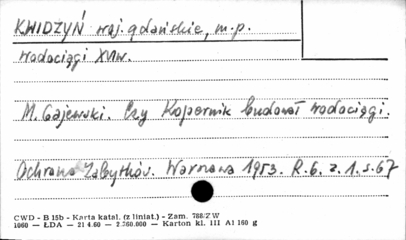 KWIDZYŃ woj. gdańskie, m.p.
wodociągi XVIw.
M. Gajewski. Czy Kopernik budował wodociągi.
Ochrona Zabytków. Warszawa 1953. R.6. z.1. s.67
CWD - B 15b - Karta katal. (z liniat.) - Zam. 788/ZW
1060 — ŁDA — 21 4.60 — 2.760.000 — Karton kl. III A1 160 g